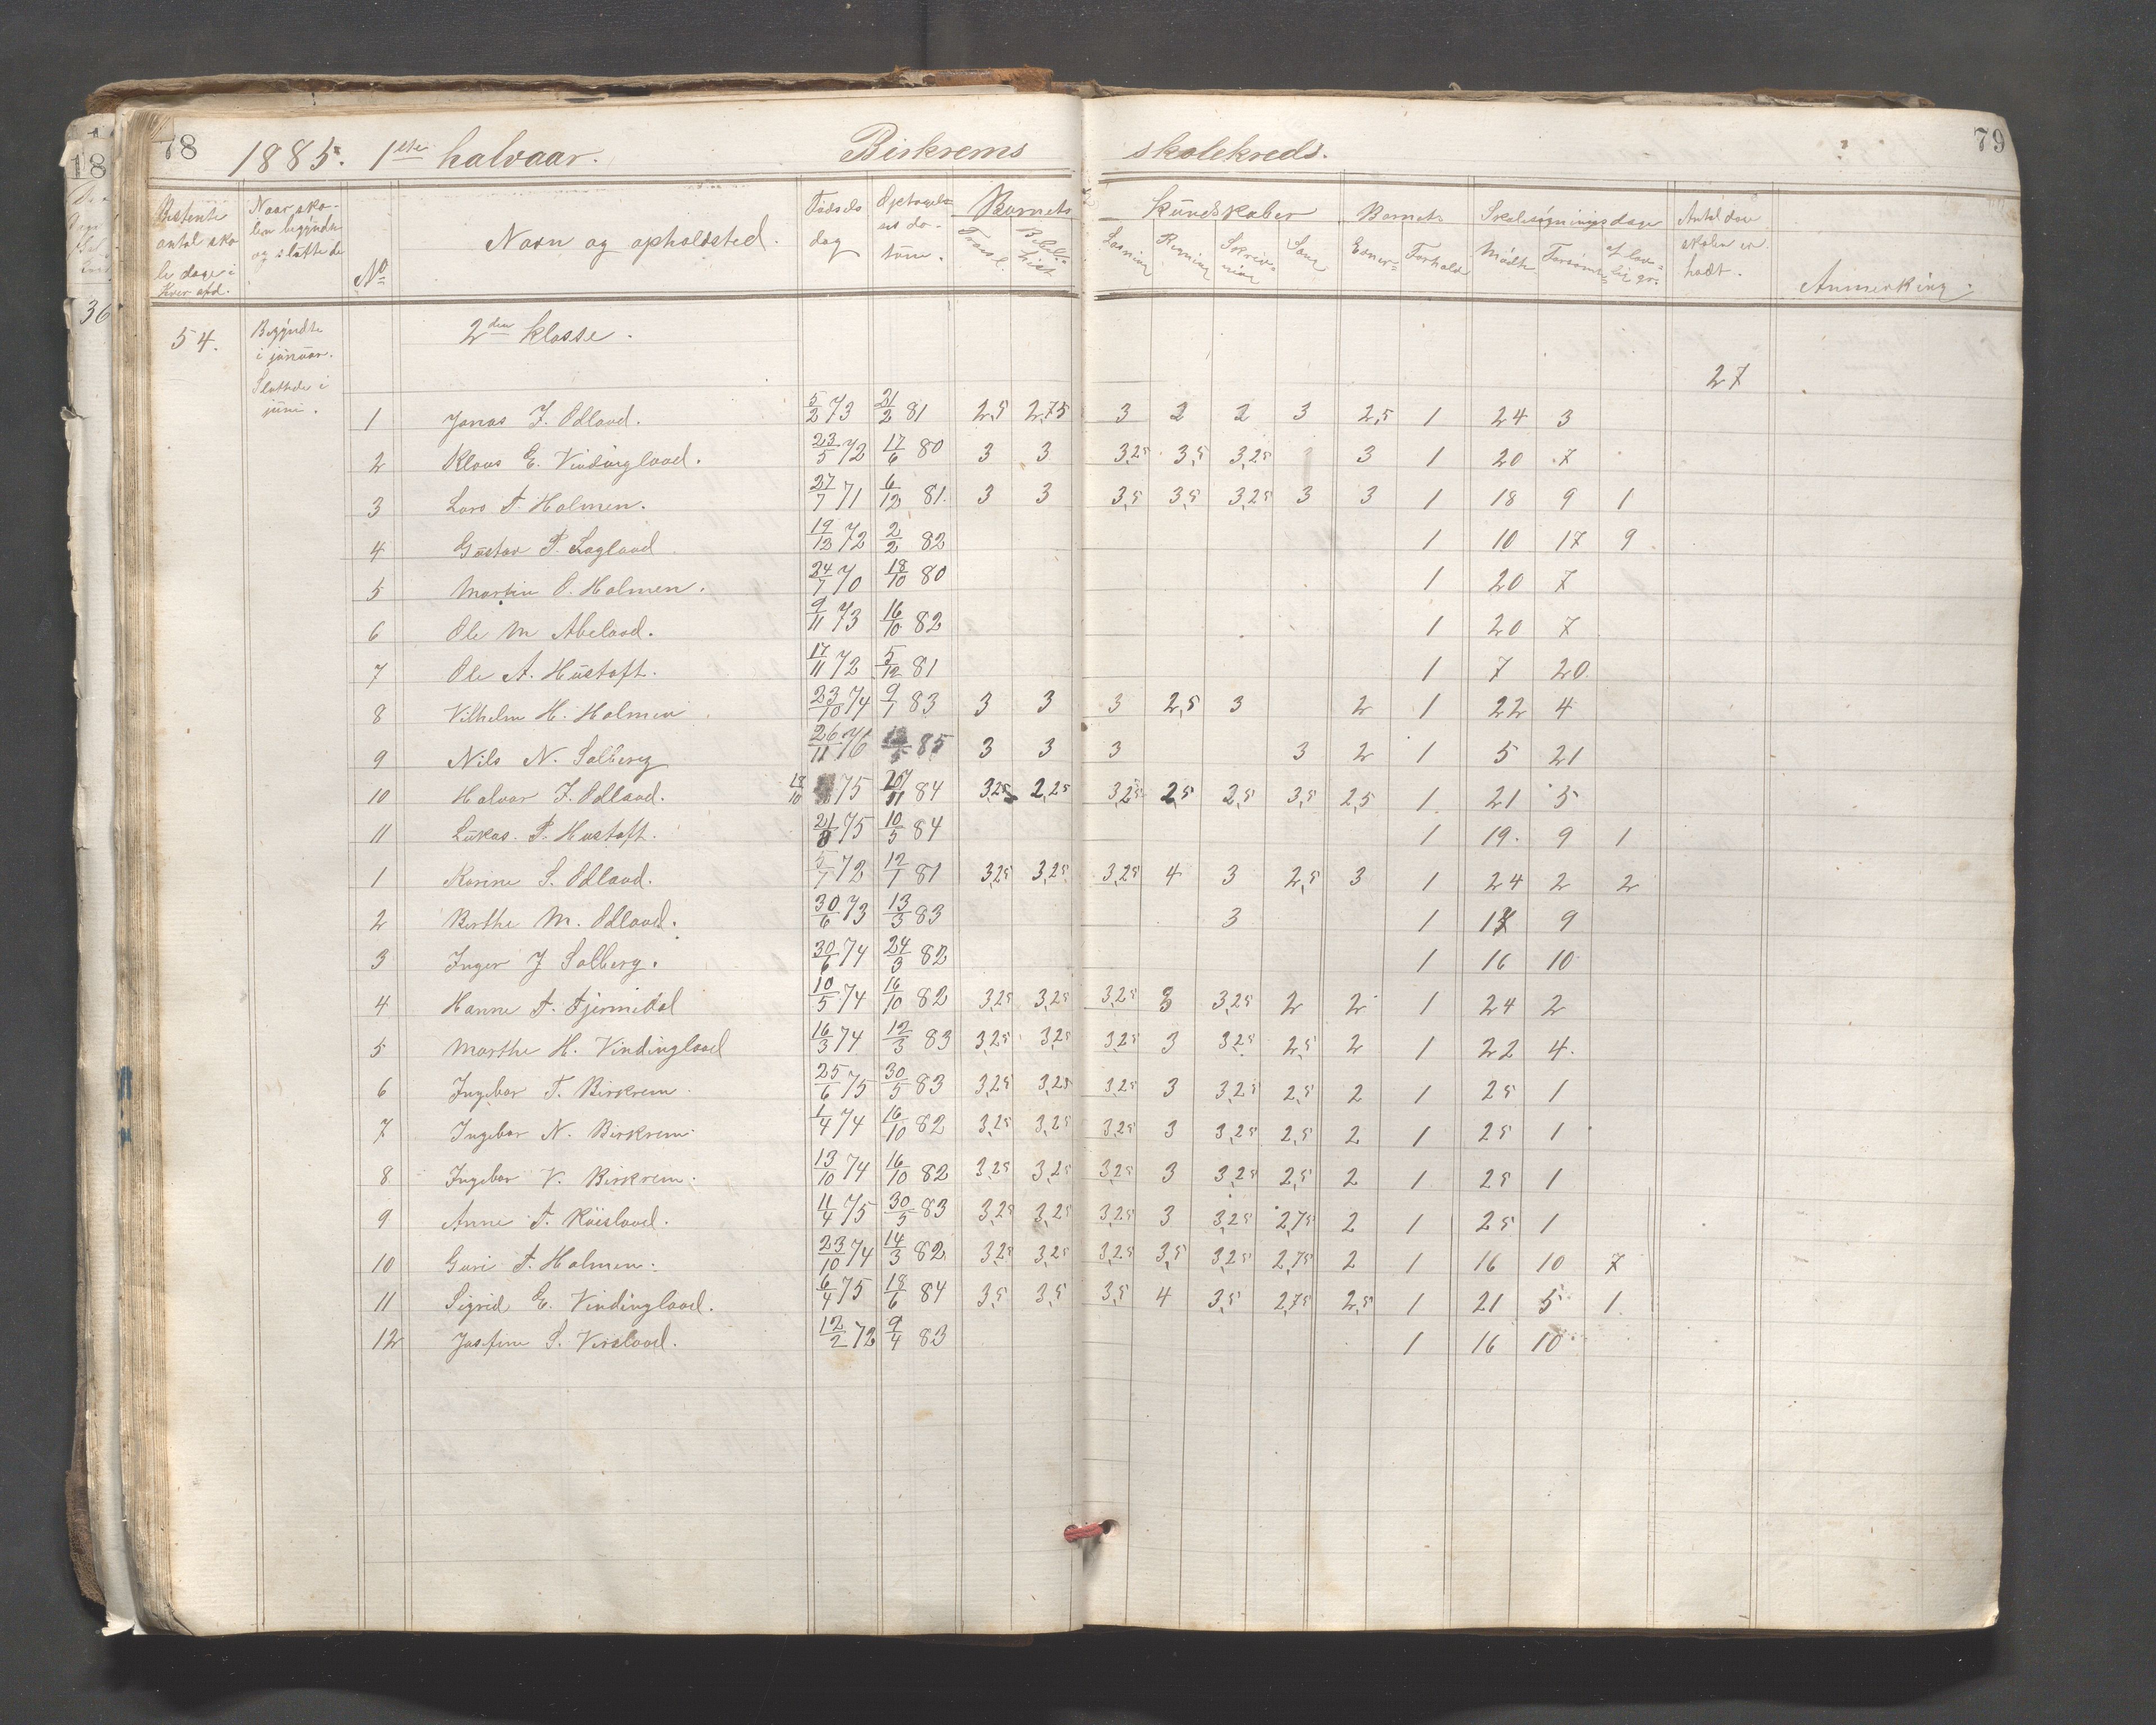 78 1885. 1ste halvaar. Birkrems skolekreds. 79
Bestemte antal skoledage i hver afd. Naar skolen begyndte og sluttede No Navn og opholdsted. Fødselsdag Optagelsesdatum. Barnets kundskaber Barnets Skolesøgningsdage Antal dage skolen er holdt. Anmerkning.
Læsning Regning Skrivning Sang Evner Forhold Mødte Forsømte
54. Begyndte i januar. Sluttede i juni. 2den klasse.
27
1 Jonas J. Odland. 5/2 73 21/2 81 2,5 2,75 3 2 2 3 2,5 1 24 3
2 Klaus E. Vindingland. 23/5 72 17/6 80 3 3 3,25 3,5 3,25 3 1 20 7
3 Lars T. Holmen. 27/7 71 6/12 81. 3 3 3,5 3,5 3,25 3 3 1 18 9 1
4 Gustav P. Lagland 19/12 72 2/2 82 1 10 17 9
5 Martin O. Holmen. 24/7 70 18/10 80 1 20 7
6 Ole M Abeland. 9/11 73 16/10 82 1 20 7
7 Ole A. Hustoft. 17/11 72 5/12 81 1 7 20
8 Vilhelm H. Holmen 23/10 74 9/1 83 3 3 3 2,5 3 2 1 22 4
9 Nils N. Solberg 26/11 76 85 3 3 3 3 2 1 5 21
10 Halvor J. Odland. 18/10 75 84 3,25 2,25 3,25 2,5 2,5 3,5 2,5 1 21 5
11 Lukas. P. Hustoft. 21/8 75 10/5 84 1 19. 9 1
1 Karine S. Odland. 5/7 72 12/1 81 3,25 3,25 3,25 4 3 2,5 3 1 24 2 2
2 Berthe M. Odland. 30/6 73 13/3 83 3 1 17 9
3 Inger J Solberg. 30/6 74 24/3 82 1 16 10
4 Hanne T. Tjørmedal 10/5 74 16/10 82 3,25 3,25 3,25 3 3,25 2 2 1 24 2
5 Marthe H. Vindingland 16/3 74 12/3 83 3,25 3,25 3,25 3 3,25 2,5 2 1 22 4.
6 Ingebor T. Birkrem 25/6 75 30/5 83 3,25 3,25 3,25 3 3,25 2,5 2 1 25 1
7 Ingebor N. Birkrem 1/4 74 16/10 82 3,25 3,25 3,25 3 3,25 2,5 2 1 25 1
8 Ingebor V. Birkrem. 13/10 74 16/10 82 3,25 3,25 3,25 3 3,25 2,5 2 1 25 1
9 Anne T. Røisland. 11/4 75 30/5 83 3,25 3,25 3,25 3 3,25 2,75 2 1 25 1
10 Guri T. Holmen. 23/10 74 14/3 82 3,25 3,25 3,25 3,5 3,25 2,75 2 1 16 10 7
11 Sigrid E. Vindingland. 6/4 75 18/6 84 3,5 3,5 3,5 4 3,5 2,75 2,5 1 21 5 1
12 Josefine S. Virsland. 12/2 72 9/4 83 1 16 10
18
36